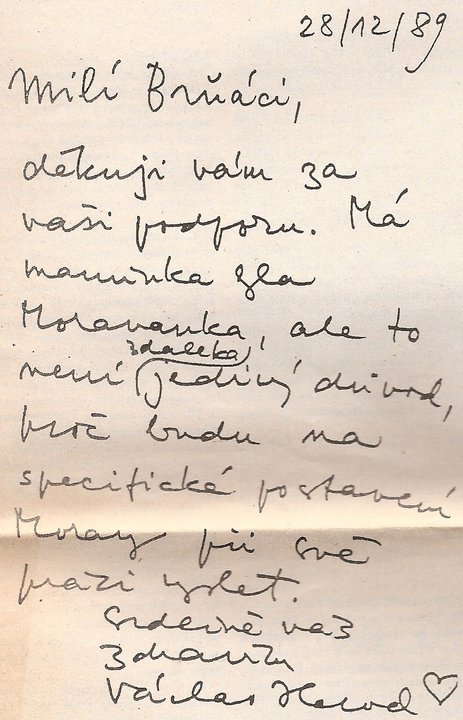 28/12/89
Milí Brňáci,
děkuji vám za
vaši podporu. Má
maminka byla
Moravanka, ale to
zdaleka
není jediný důvod,
proč budu na
specifické postavení
Moravy při své
práci myslet.
Srdečně vás
zdraví
Václav Havel